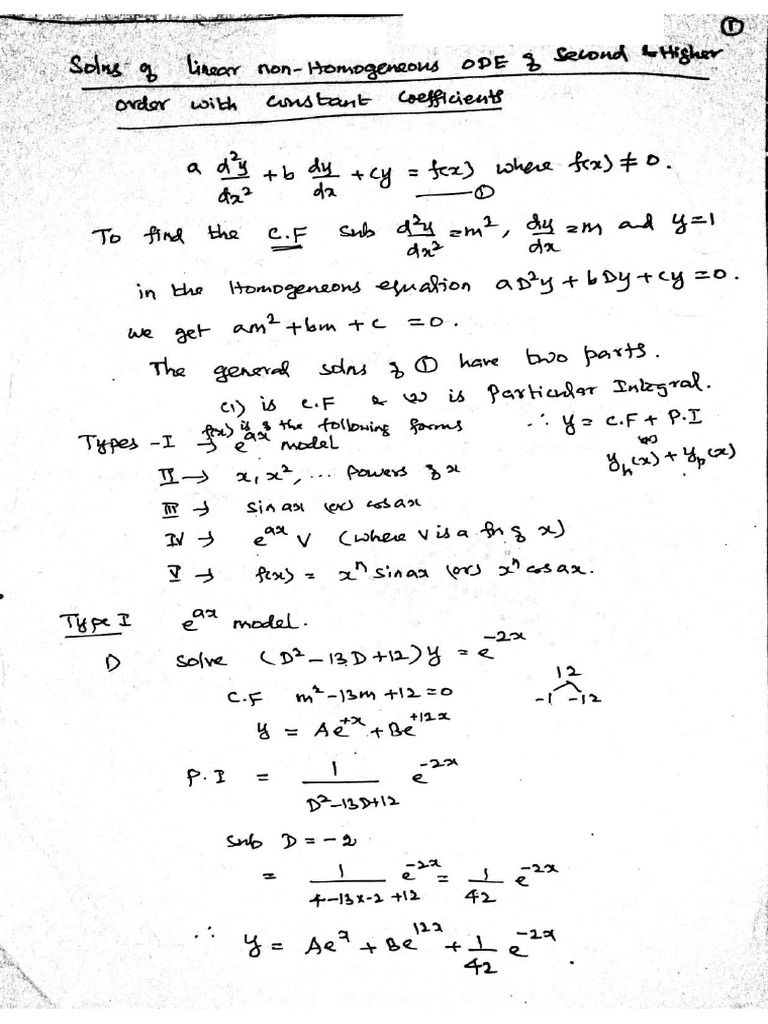 ①
Solns of linear non-Homogeneous ODE of Second & Higher
order with constant coefficients
a d²y/dx² + b dy/dx + cy = f(x) where f(x) ≠ 0. ——①
To find the C.F sub d²y/dx² = m², dy/dx = m and y=1
in the Homogeneous equation aD²y + bDy + cy = 0.
we get am² + bm + c = 0.
The general solns of ① have two parts.
(1) is C.F & (2) is Particular Integral.
f(x) is of the following forms ∴ y = C.F + P.I
Types - I → e^{ax} model (or)
y_h(x) + y_p(x)
II → x, x², ... Powers of x
III → sin ax (or) cos ax
IV → e^{ax} V (where V is a fn of x)
V → f(x) = xⁿ sin ax (or) xⁿ cos ax.
Type I e^{ax} model.
1) Solve (D² – 13D + 12) y = e^{-2x}
12
C.F m² – 13m + 12 = 0 -1 -12
y = Ae^{+x} + Be^{+12x}
P.I = 1/(D²-13D+12) e^{-2x}
Sub D = -2
= 1/(4-13x-2 +12) e^{-2x} = 1/42 e^{-2x}
∴ y = Ae^{x} + Be^{12x} + 1/42 e^{-2x}.